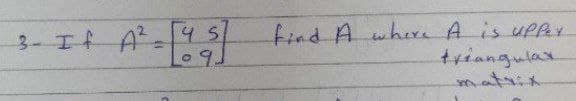 3- If A² = [4 5] find A where A is upper
[0 9] triangular
matrix